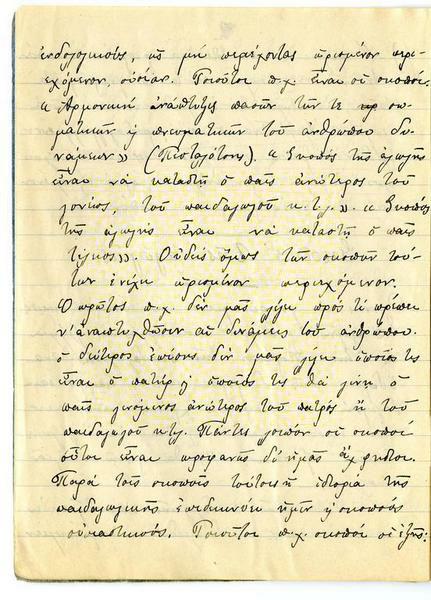 ενδολογικούς, ως μη περιέχοντας ωρισμένον περι-
εχόμενον, ουσίαν. Τοιούτοι π.χ. είναι οι σκοποί.
«Αρμονική ανάπτυξις πασών των τε σω-
ματικών ή πνευματικών του ανθρώπου δυ-
νάμεων» (Πεσταλότσης). «Σκοπός της αγωγής
είναι να καταστή ο παις ανώτερος του
γονέως, του παιδαγωγού κ.τ.λ.». «Σκοπός
της αγωγής είναι να καταστή ο παις
τέλειος». Ουδείς όμως των σκοπών τού-
των ενέχει ωρισμένον περιεχόμενον.
Ο πρώτος π.χ. δεν μας λέγει προς τί πρέπει
ν' αναπτυχθώσιν αι δυνάμεις του ανθρώπου.
ο δεύτερος επίσης δεν μας λέγει όποιός τις
είναι ο πατήρ ή όποιός τις θα γίνη ο
παις γενόμενος ανώτερος του πατρός ή του
παιδαγωγού κτλ. Πάντες λοιπόν οι σκοποί
ούτοι είναι προφανώς δι' ημάς άχρηστοι.
Παρά τοις σκοποίς τούτοις η ιστορία της
παιδαγωγικής επιδεικνύει ημίν ή σκοπούς
ουσιαστικούς. Τοιούτοι π.χ. σκοποί οι εξής: